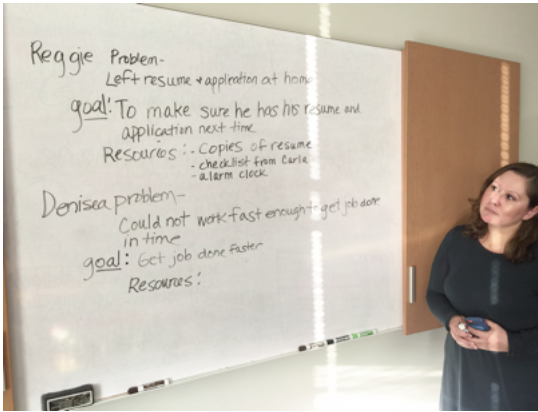 Reggie Problem-
Left resume + application at home
goal: To make sure he has his resume and
application next time
Resources: - Copies of resume
- checklist from Carla
- alarm clock
Denisea problem-
Could not work fast enough to get job done
in time
goal: Get job done faster
Resources: